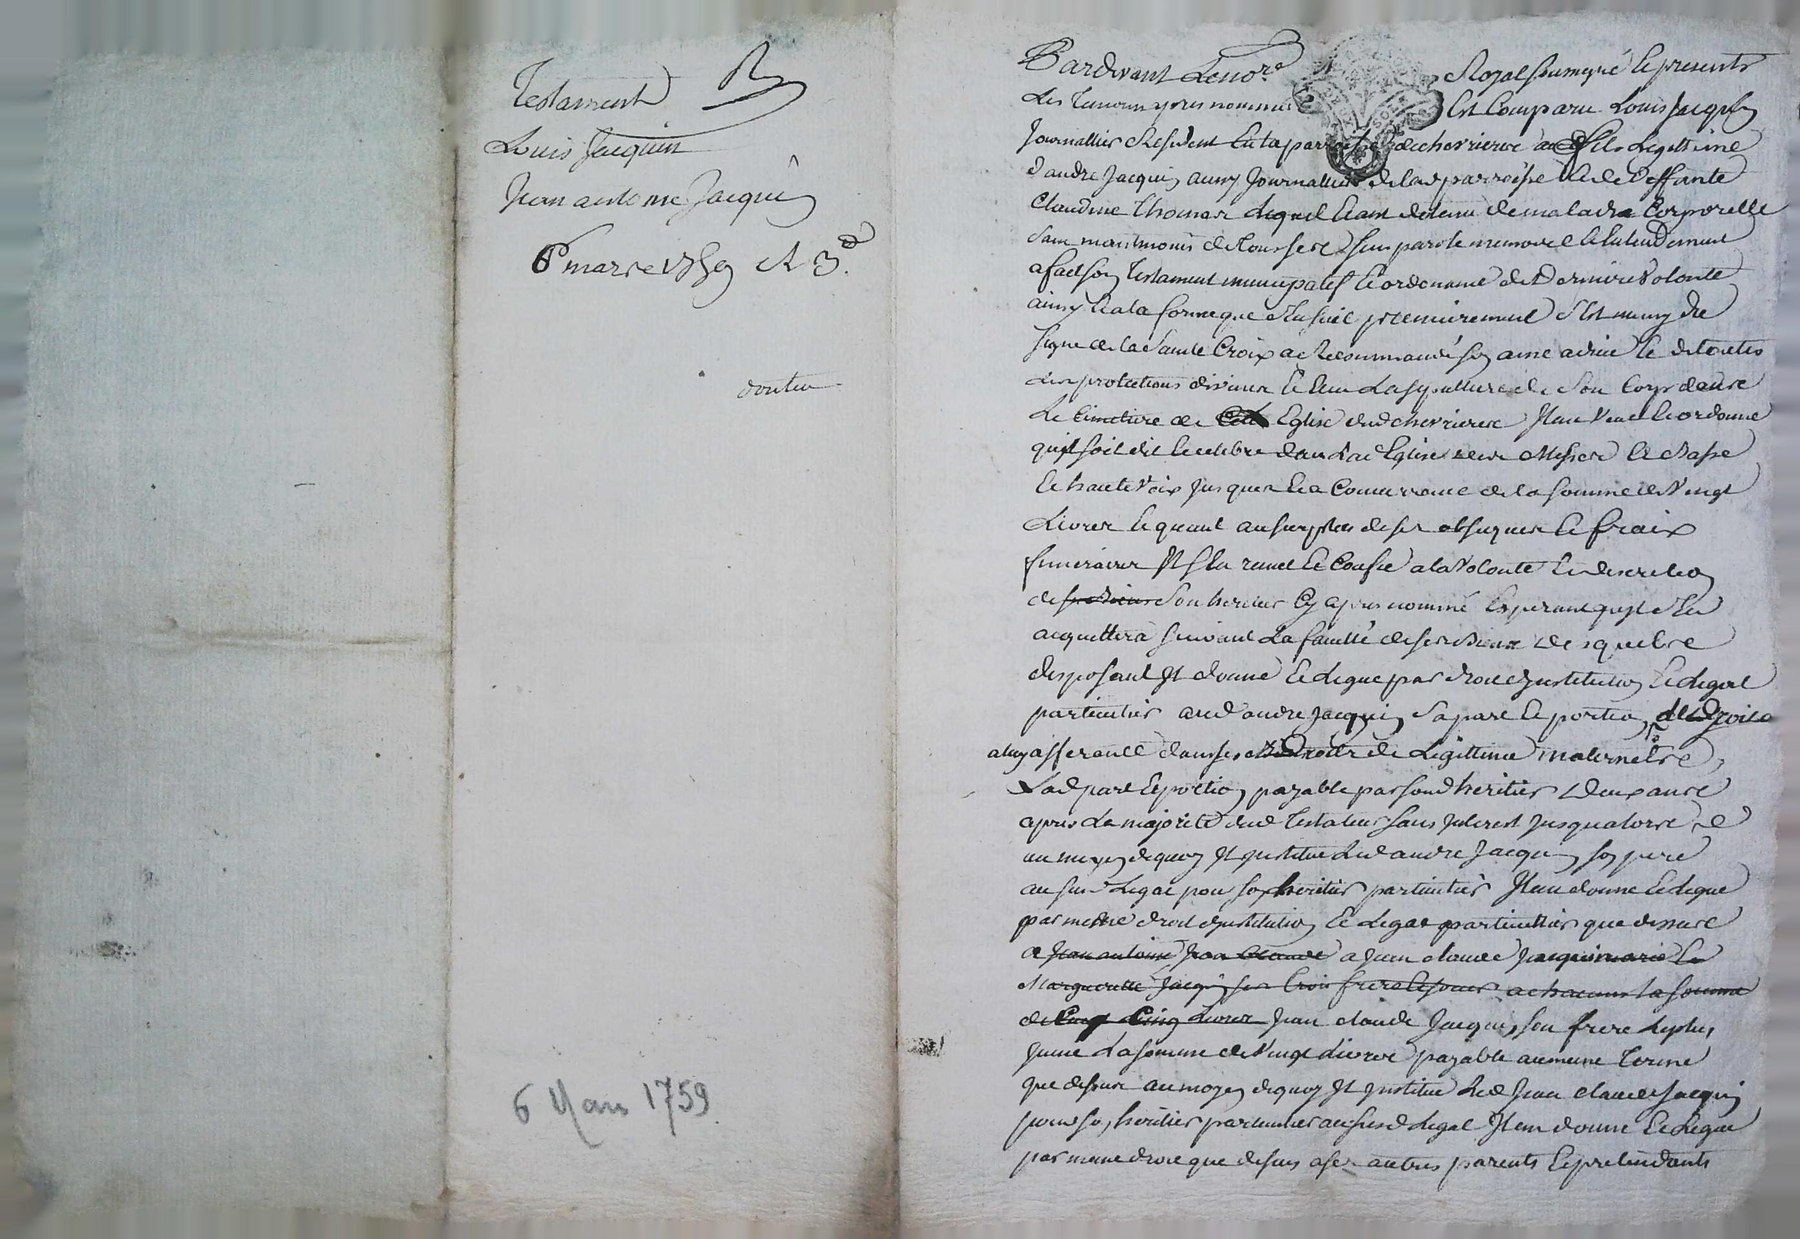 Testament
Louis Jacquin
Jean antoine Jacquin
6e marse 1759 et 3.
6 Mars 1759
Pardevant Le nore Royal soussigné Le presents
Les Temoins apres nommes Est Comparu Louis Jacquin
Journallier Resident En la parroisse de chevrierre fils Legittime
d'andre Jacquin aussy Journallier de lad parroisse Et de deffunte
Claudine Thomas Lequel Etant detenu de maladie Corporelle
sain neantmoins de Tous ses sens parole memoire Et Entendement
a fait son Testament nuncupatif Et ordonnance de Derniere Volonté
ainsy Et a la forme que s'En suit premierement s'Est muny du
signe de la Sainte Croix a Recommandé son ame a dieu
Eslu La sepulture de Son Corps dans
Le Cimetiere de Eglise dud chevrierre Item Veut Et ordonne
qu'il soit dit Et celebré dans Lad Eglise Messes Et Basse
Et haute Voix Jusques a la Concurrence de la somme de Vingt
Livres Et quant au surplus de ses obseques Et fraix
funeraires Il s'En remet Et Confie a la Volonté Et discretion
de son heritier Cy apres nommé Esperant quil s'En
acquittera suivant La faculté de ses Biens desquels
disposant Il donne Et Legue par droit d'Institution Et Legat
particulier aud andre Jacquin sa part Et portion
a luy afferante dans ses droits de Legittime maternelle
Lad part Et portion payable par sond heritier deux ans
apres La majorité dud Testateur sans Interest Jusqu'alorse Et
au moyen de quoy Il Institue Led andre Jacquin son pere
au susd Legat pour son heritier particulier Item donne Et Legue
par meme droit d'Institution Et Legat particulier que dessus
a Jean antoine Jean Claude a Jean claude Jacquin marie Et
Margueritte Jacquin ses trois frere Et soeurs a chacun la somme
de Cinq Livres Jean claude Jacquin son frere Le plus
Jeune La somme de Vingt Livres payable au meme Terme
que dessus au moyen de quoy Il Institue Led Jean claude Jacquin
pour son heritier particulier au susd Legat Item donne Et Legue
par meme droit que dessus a ses autres parents Et pretendants